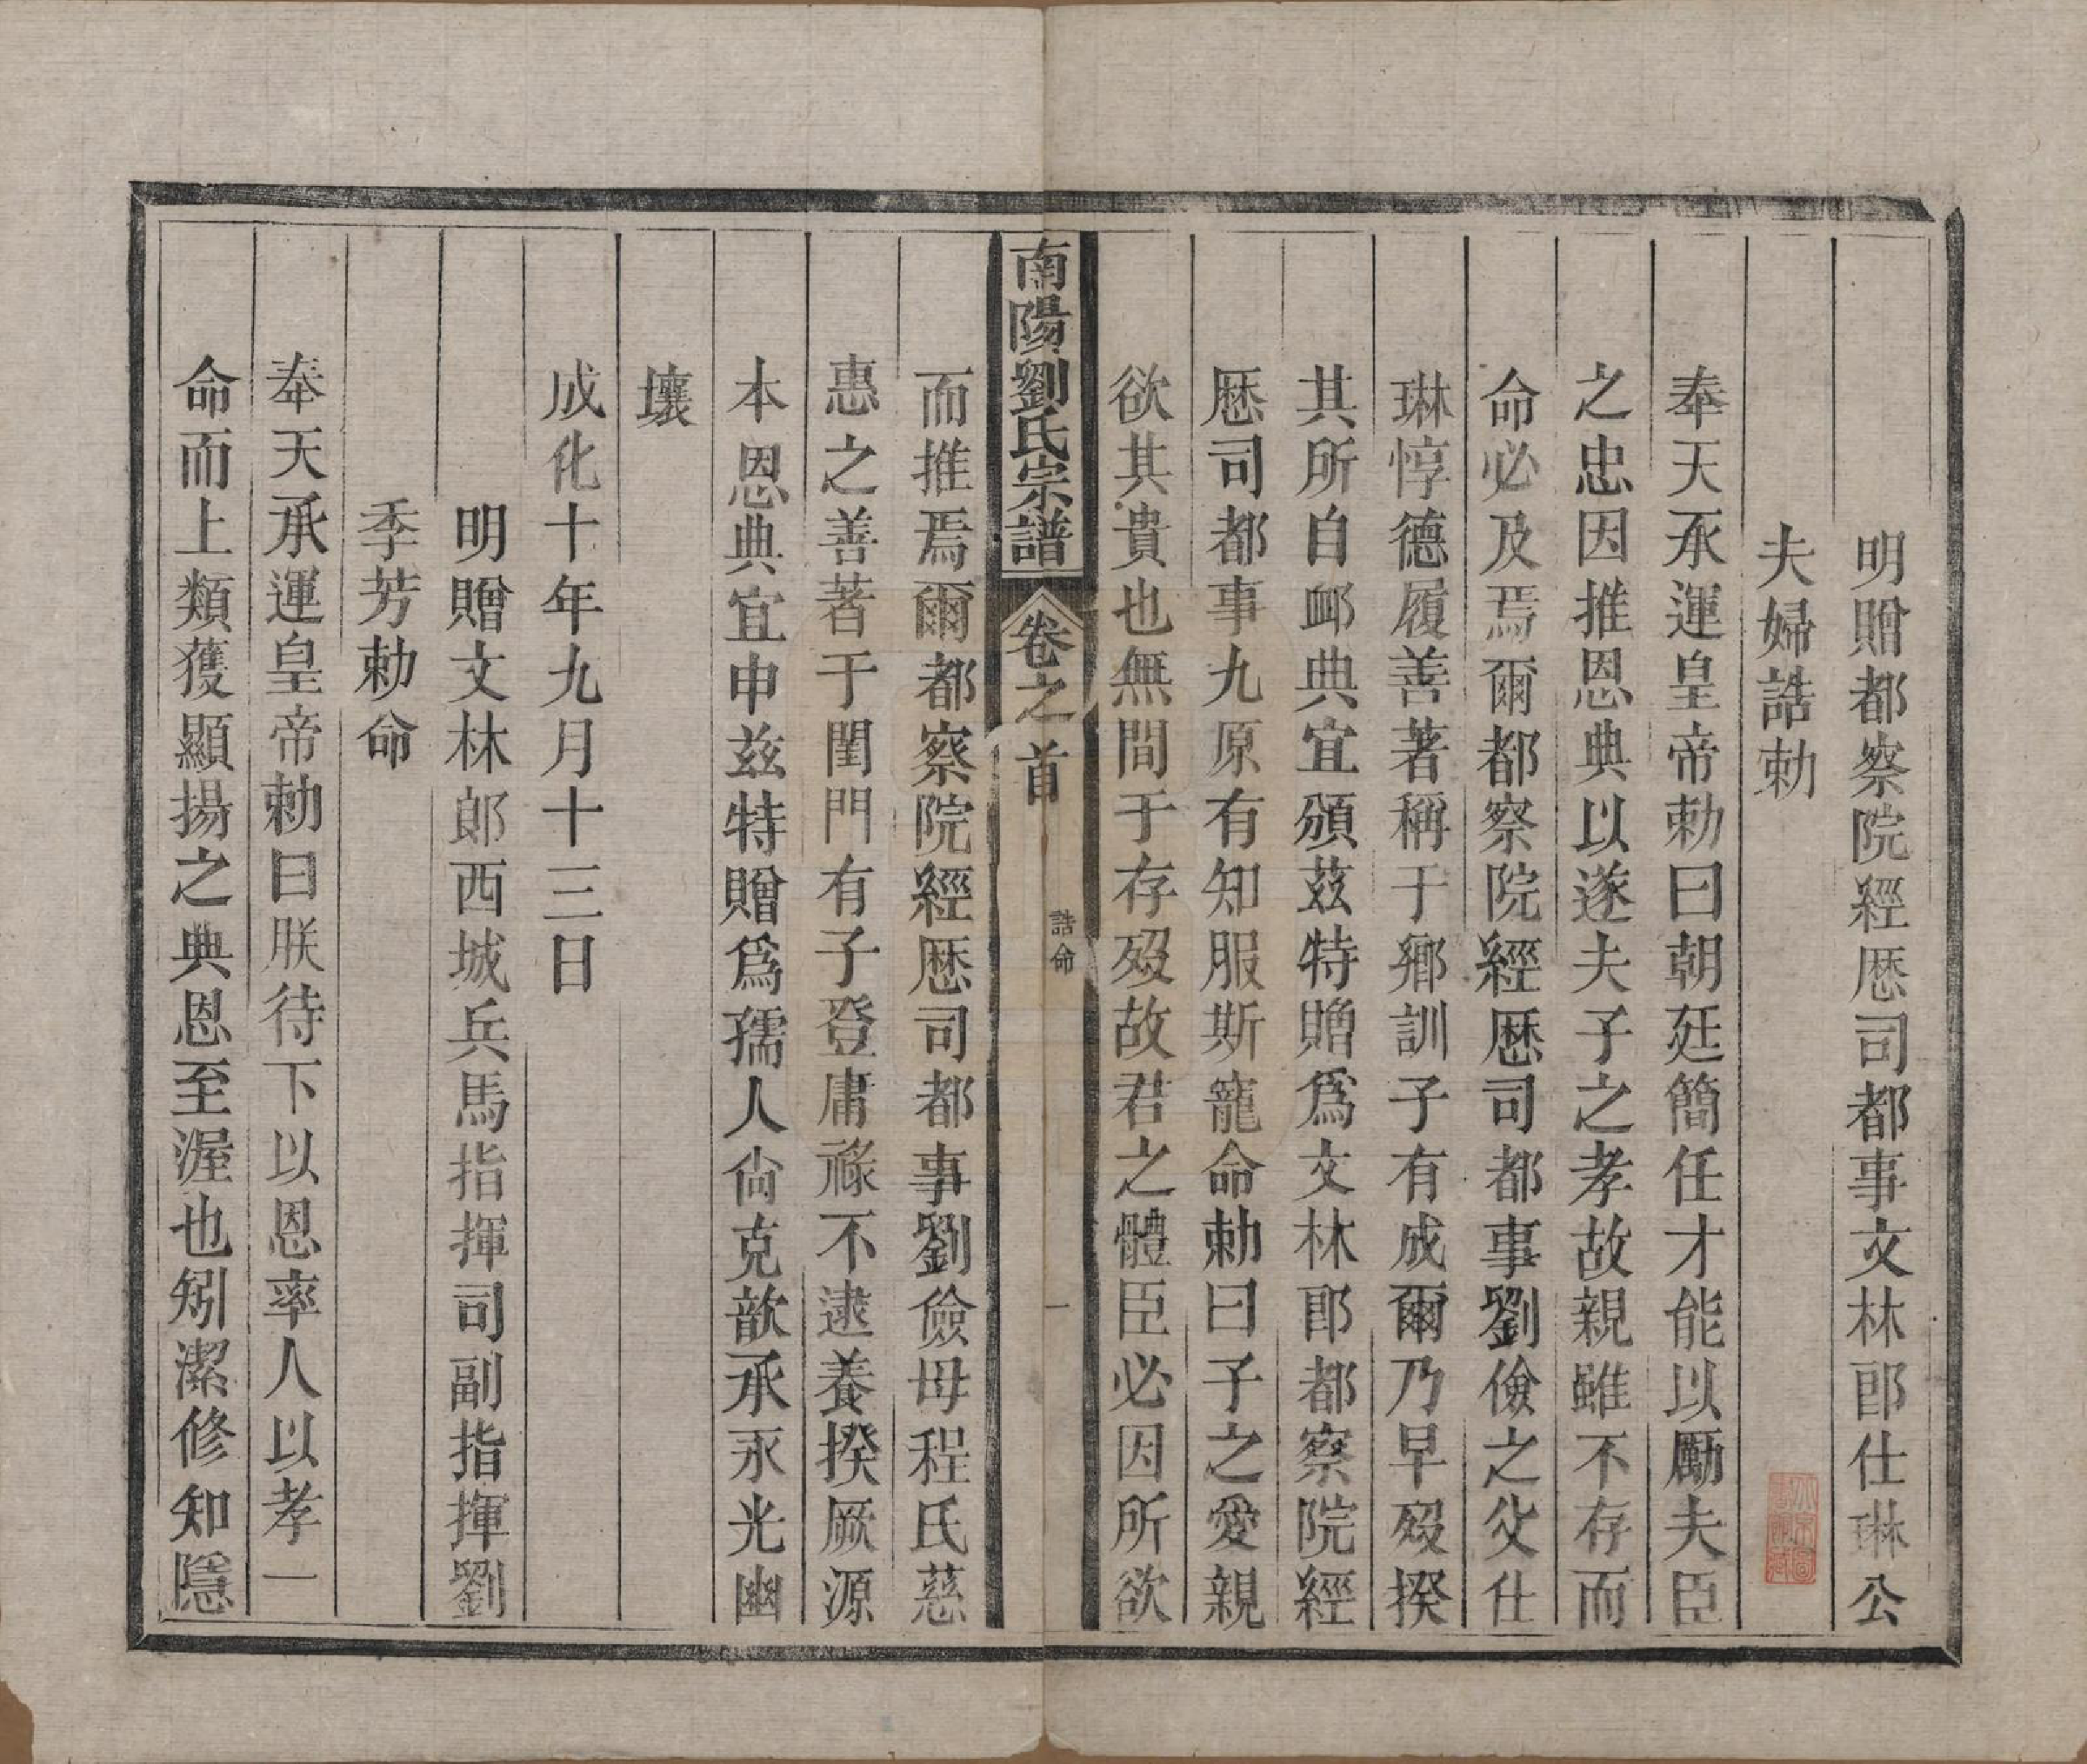 明贈都察院經歷司都事文林郎仕琳公
夫婦誥勅
奉天承運皇帝勅曰朝廷簡任才能以勵夫臣
之忠因推恩典以遂夫子之孝故親雖不存而
命必及焉爾都察院經歷司都事劉儉之父仕
琳惇德履善著稱于鄉訓子有成爾乃早歿揆
其所自卹典宜頒茲特贈爲文林郎都察院經
歷司都事九原有知服斯寵命勅曰子之愛親
欲其貴也無間于存歿故君之體臣必因所欲
南陽劉氏宗譜 卷之首 誥命 一
而推焉爾都察院經歷司都事劉儉母程氏慈
惠之善著于閨門有子登庸祿不逮養揆厥源
本恩典宜申兹特贈爲孺人尙克歆承永光幽
壤
成化十年九月十三日
明贈文林郎西城兵馬指揮司副指揮劉
季芳勅命
奉天承運皇帝勅曰朕待下以恩率人以孝一
命而上類獲顯揚之典恩至渥也矧潔修知隱